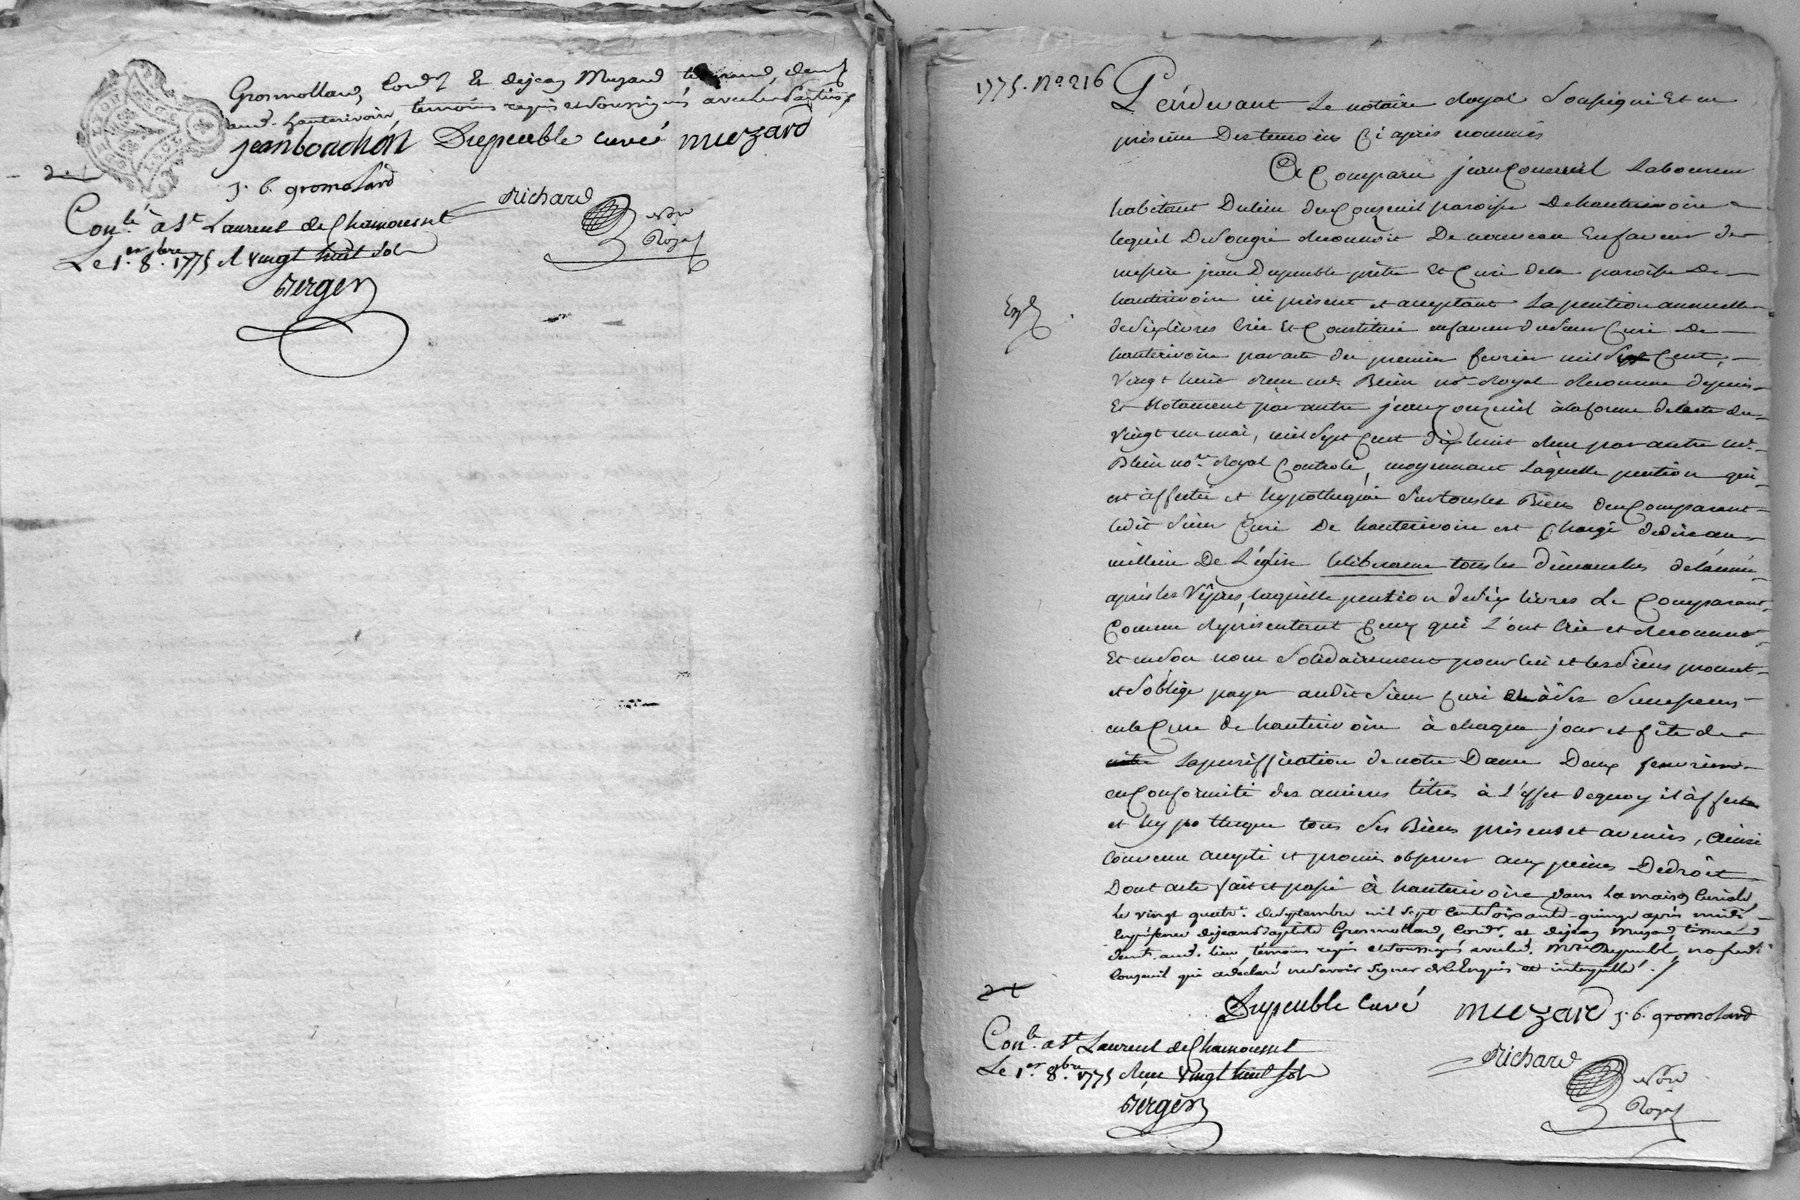 Grosmollard, Cordr. Et dejean Muzard tisserand, demt
aud. hauterivoire, témoins requis et soussignés avec les parties
jean bouchon Dupeuble curé muezard
j. b. gromolard
Richard
nore Royal
Conlé à St Laurent de Chamousset
Le 1er 8bre 1775 R vingt huit sols
Berger
1775. No 216
Pardevant Le notaire Royal Soussigné Et en
présence Des temoins Ci après nommés
A Comparu jean Couzeuil Laboureur
habitant Du lieu du Couzeuil paroisse De hauterivoire
lequel De son gré Reconnoit De nouveau En faveur de
messire jean Dupeuble prêtre Et Curé de la paroisse De
hauterivoire ici présent et acceptant La pention annuelle
de six livres Créé Et Constitué en faveur du sieur Curé De
hauterivoire par acte du premier fevrier mil Sept Cent
Vingt huit Reçu me. Blein nore Royal Reconnue depuis
Et Notament par autre jean Couzeuil à la forme de l'acte du
Vingt un mai, mil Sept Cent dix huit Reçu par autre me.
Blein nore Royal Controlé, moyennant Laquelle pention qui
est affectée et hypothequée Sur tous les Biens du Comparant
ledit Sieur Curé De hauterivoire est Chargé de dire au
millieu De L'église le libera me tous les dimanches de l'année
après les Vêpres, laquelle pention de six livres Le Comparant,
Comme Représentant Ceux qui L'ont Créé et Reconnue
Et en Son nom Solidairement pour lui et les Siens promet
et s'oblige payer audit Sieur Curé et à Ses Successeurs
en la Cure de hauterivoire à chaque jour et fête de
la purification de notre Dame Deux fevrier
en Conformité des anciens titres à L'effet de quoy il affecte
et hypotheque tous Ses Biens présens et avenirs, Ainsi
Convenu accepté et promis observer aux peines De droit
Dont acte fait et passé à hauterivoire dans La maison Curiale,
Le vingt quatre. de Septembre mil Sept Cent soixante-quinze après midi
En présence de jean Baptiste Grosmollard, Cordr. et dejean Muzard tisserand
demt. aud. lieu, témoins requis et soussignés avec led. Mre Dupeuble, non led.
Couzeuil qui a déclaré ne savoir signer de ce Enquis et interpellé.
Dupeuble curé muezard j. b. gromolard
Richard
nore Royal
Conlé a St Laurent de Chamousset
Le 1er 8bre 1775 Reçu vingt huit sols
Berger